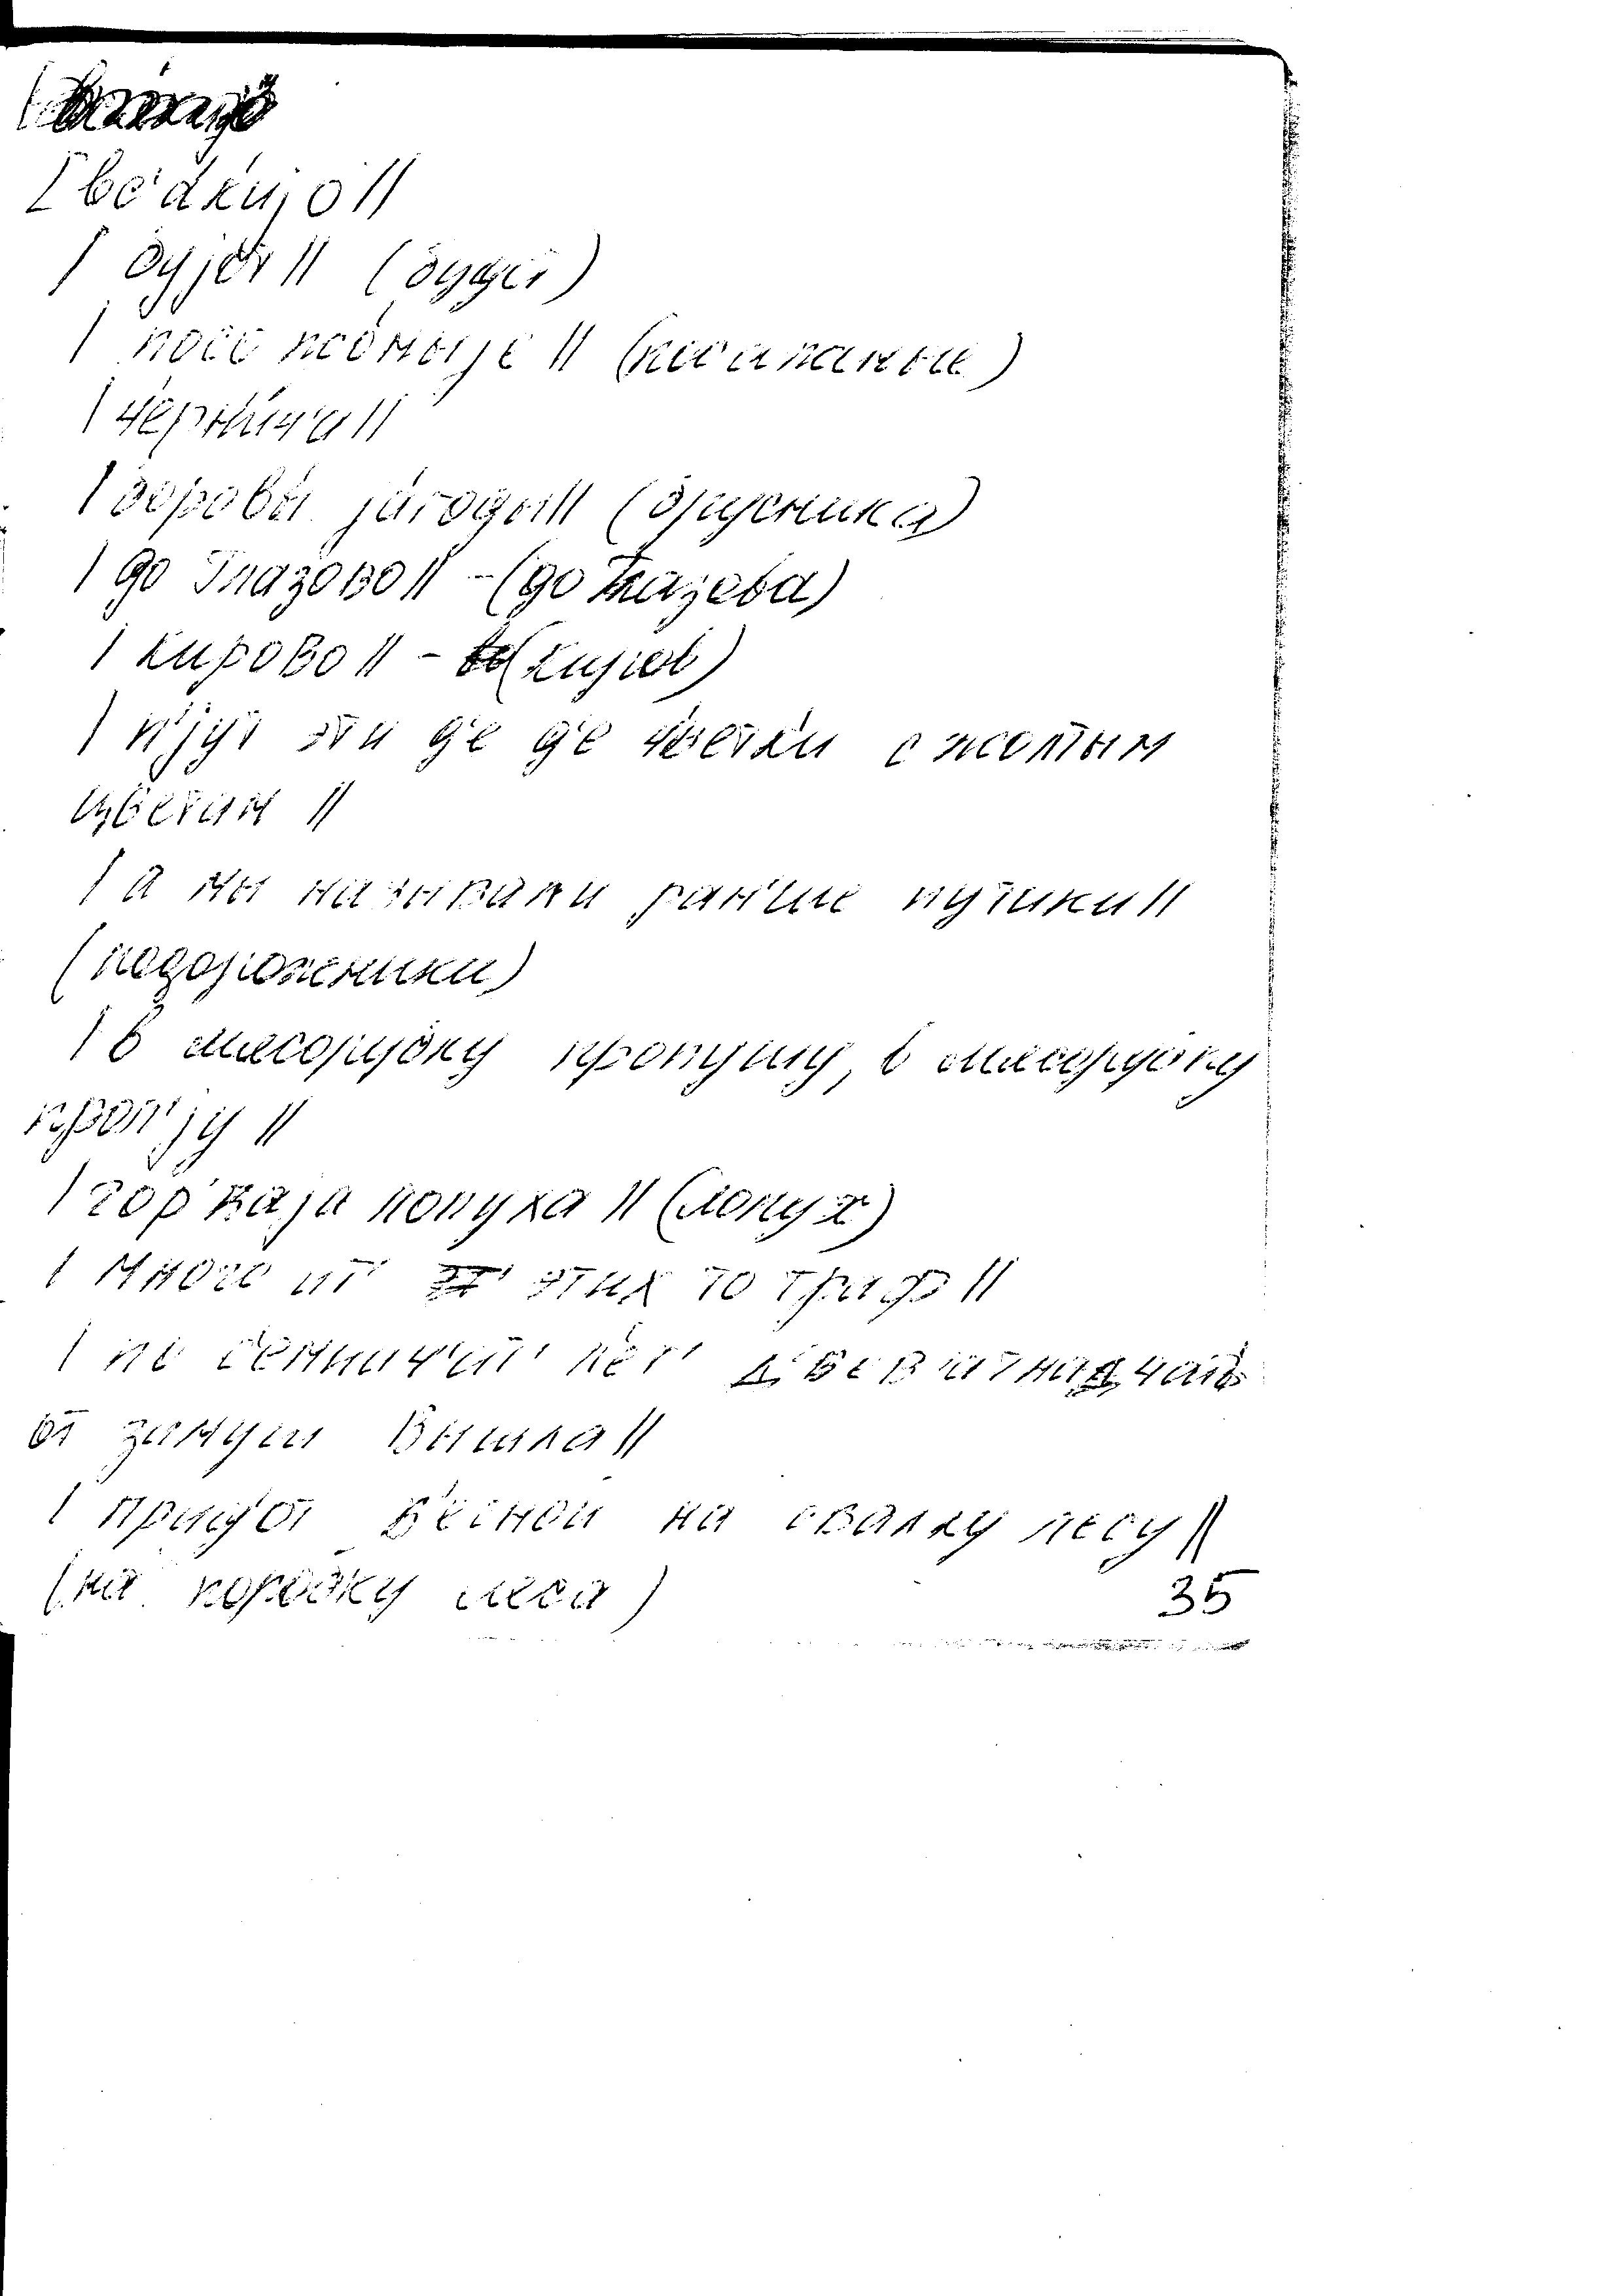 | бу́jот || (будет)
| посо жо́ныjе || (посаженые)
| черни́ч'а ||
| боровы́ jа́годы || (брусника)
| до Глазово || - (до Глазова)
| Кирово || - (Киров)
| п'jут эти д'е д'е цветки с жолтым
цветам ||
| а мы называли ран'ше путики ||
(подорожники)
| в мясорубку пропущу, в мясорубку
проп'jу ||
| гор'каjа лопуха || (лопух)
| много ит' этих то траф ||
| по семнач'ат' лет'
от замуш вышла ||
| придот весной на свалку лесу ||
(на порубку леса)
35